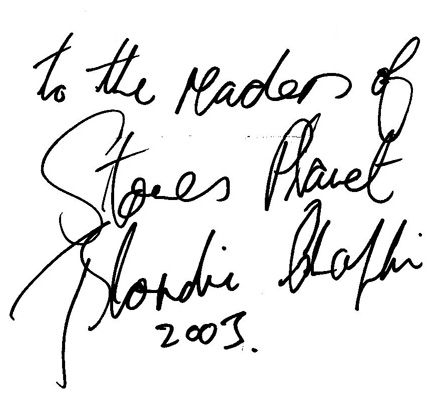 to the readers of
Stones Planet
Blondie Chaplin
2003.